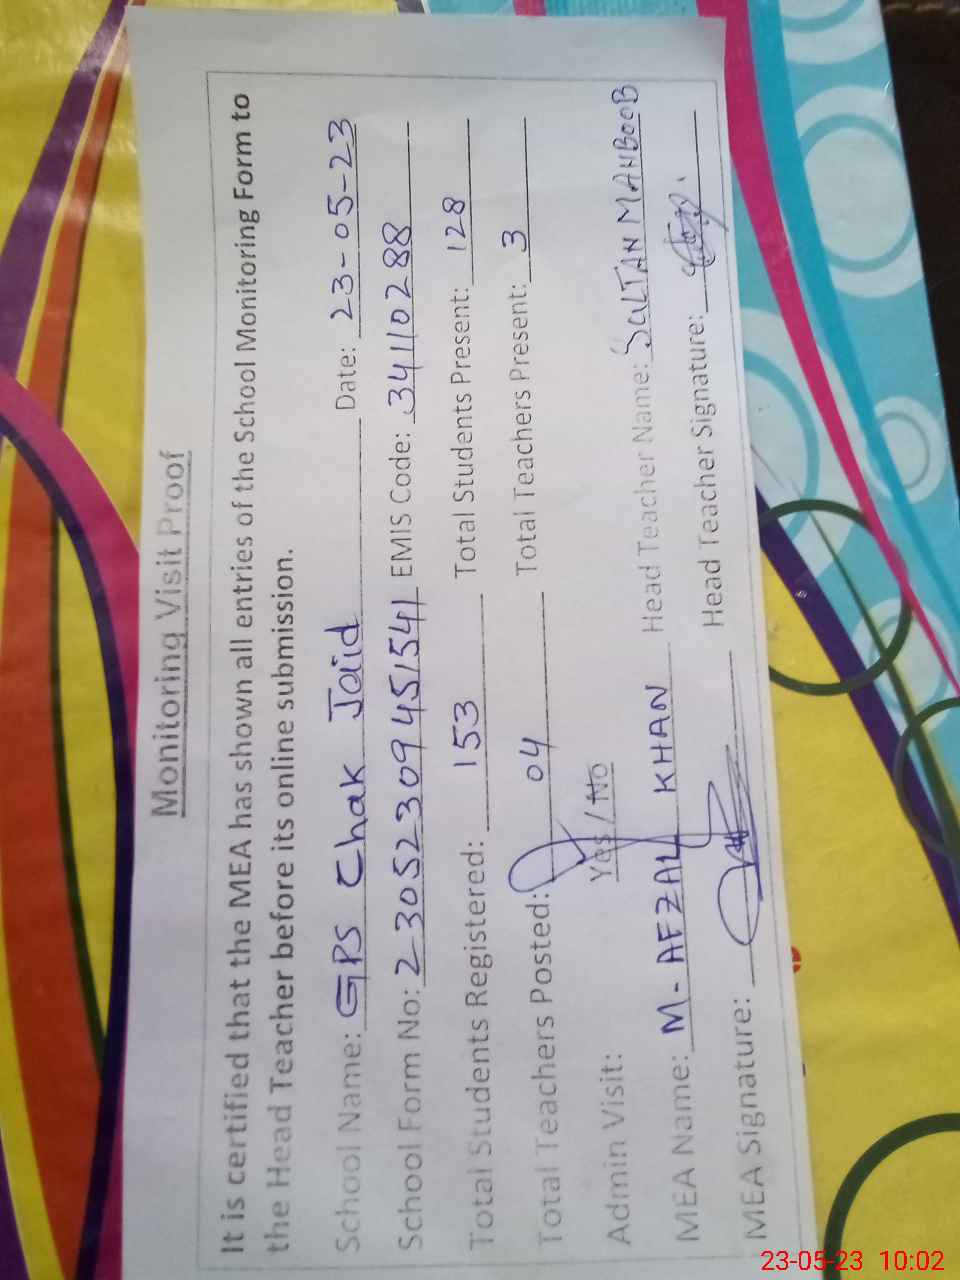 Monitoring Visit Proof
It is certified that the MEA has shown all entries of the School Monitoring Form to
the Head Teacher before its online submission.
School Name: GPS Chak Jaid Date: 23-05-23
School Form No: 230523094515541 EMIS Code: 34110288
Total Students Registered: 153 Total Students Present: 128
Total Teachers Posted: 04 Total Teachers Present: 3
Admin Visit: Yes / No
MEA Name: M. AFZAL KHAN Head Teacher Name: SULTAN MAHBOOB
MEA Signature: Head Teacher Signature:
23-05-23 10:02